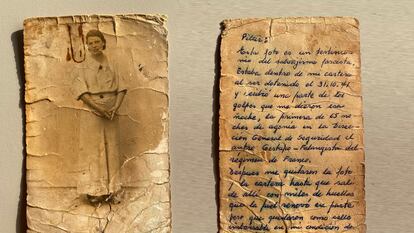 Pilar:
Esta foto es un testimo-
nio del salvajismo fascista.
Estaba dentro de mi cartera
al ser detenido el 31.10.41
y recibió una parte de los
golpes que me dieron esa
noche, la primera de 65 no-
ches de agonía en la Direc-
ción General de Seguridad el
antro Gestapo-Falangista del
régimen de Franco.
Después me quitaron la foto
y la cartera hasta que salí
de allí con miles de huellas
que la piel renovó en parte
pero que quedaron como sello
imborrable en mi condición de